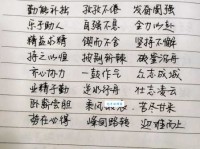 勤能补拙 孜孜不倦 发奋图强
乐于助人 自强不息 全力以赴
精益求精 锲而不舍 坚持不懈
持之以恒 披荆斩棘 破釜沉舟
齐心协力 一鼓作气 众志成城
业精于勤 逆水行舟 壮志凌云
卧薪尝胆 乘风破浪
势在必得 峰回路转 迎难而上